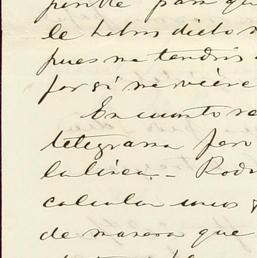 para que
le habra dicho
pues no tendrá
por si no viene
En cuanto re
telegrama pero
la linea. - Rodr
calcular unos
de manera que